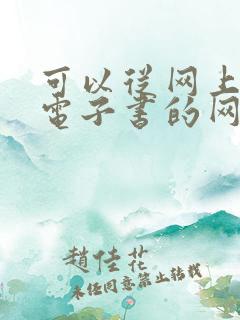 可以從网上
電子書的网
趙佳花
未经同意禁止转载